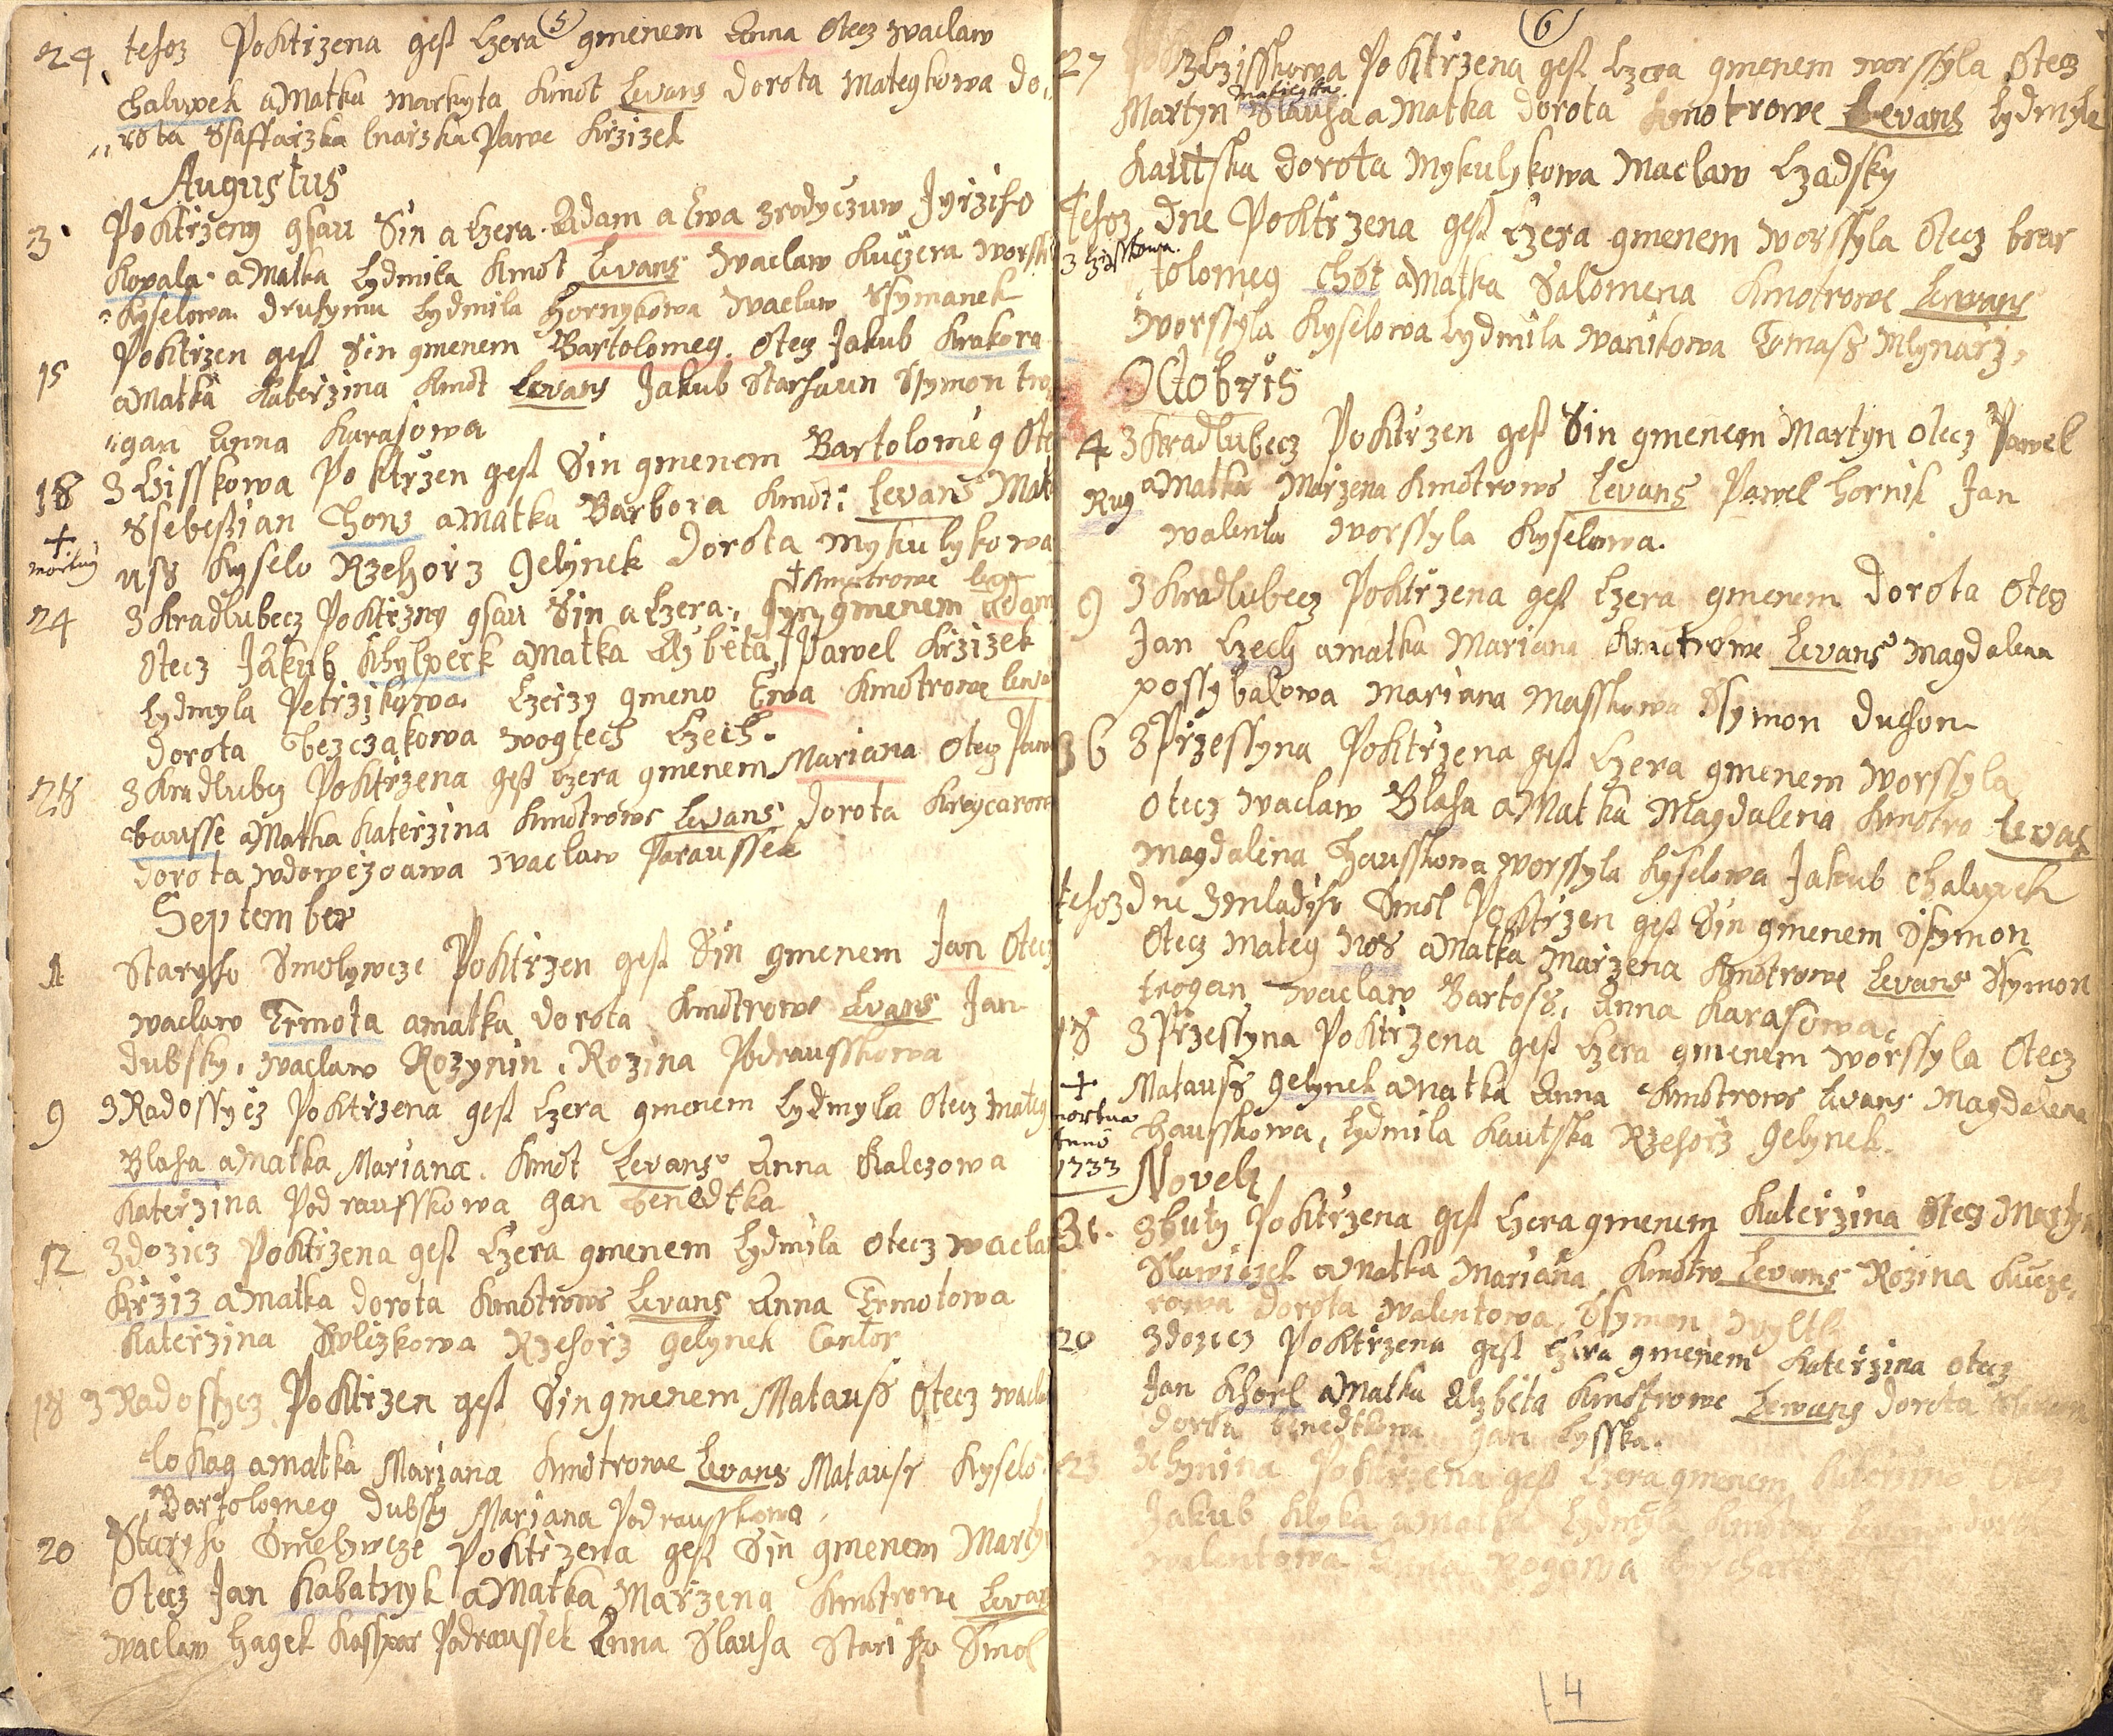 5
24 tehoz Poktrzena gest Czera gmenem Anna Otecz waclaw
Chalupek a Matka Markyta Kmot Levans Dorota Mateykowa Do„
„rota Ssaffarzka Pawe Krzizek
Augustus
3 Poktrzeny gsau Sin a Czera. Adam a Ewa zrodyczuw Jyrziho
Kovala a Matka Lydmila Kmot Levans Waclaw Kuczera
Kyselowa. druhymu Lydmila Hornykowa Waclaw Ssymanek
15 Poktrzen gest Sin gmenem Bartolomeg. Otecz Jakub Krakora
a Matka Katerzina Kmot Levans Jakub Ssymon tro
„gan Anna Karasowa
18 z Lzisskowa Poktrzen gest Sin gmenem Bartolomeg Ote
Ssebestian Chonz a Matka Barbora Kmot: Levans Mat
+ mortuy uss Kyselo Rzehorz Gelynek Dorota Mykulykowa
+ Kmotrowe
24 z Kradlubecz Poktrzny gsau Sin a Czera, Syn gmenem Adam
Otecz Jakub Khylperk a Matka Alzbeta, Pawel Krzizek
Lydmyla Petrzikowa. Czerzy gmeno Ewa Kmotrowe
Dorota bezczakowa Wogtech Czech.
28 z Kradlubecz Poktrzena gest Czera gmenem Mariana Otecz
bausse a Matka Katerzina Kmotrowe Levans Dorota
Dorota Waclaw Paraussek
September
1 Staryho Smolywcze Poktrzen gest Sin gmenem Jan Otecz
Waclaw Trmota a Matka Dorota Kmotrowe Levans Jan
Dubsky, Waclaw Rozynin, Rozina Podrausskowa
9 z Radossycz Poktrzena gest Czera gmenem Lydmyla Otecz Mateg
Blaha a Matka Mariana. Kmot Levans Anna
Katerzina Podrausskowa Gan benedtka
12 zdozicz Poktrzena gest Czera gmenem Lydmila Otecz Wacla
Krziz a Matka Dorota Kmotrowe Levans Anna Trmotowa
Katerzina Rzehorz Gelynek Cantor
18 z Radossycz Poktrzen gest Sin gmenem Matauss Otecz
Lokag a Matka Mariana Kmotrowe Levans Matauss Kyselo
Bartolomeg Dubsky Mariana Podrausskowa
20 Staryho Smolywcze Poktrzena gest Sin gmenem Marty
Otecz Jan Kabatnyk a Matka Marzena Kmotrowe Levan
Waclaw Hagek Kasspar Podraussek Anna Slauha Stariho Smol
6
27 z Lzisskowa Poktrzena gest Czera gmenem Worssyla Otecz
Martyn Slauha a Matka Dorota Kmotrowe Levans Lydmyla
Kautska Dorota Mykulykowa Waclaw Czadsky
Tehoz Dne Poktrzena gest Czera gmenem Worssyla Otecz bar
z Lzisskowa. tolomeg Chot a Matka Salomena Kmotrowe Lewans
Worssyla Kyselowa Lydmila Wanikowa Tomass Mlynarz,
Octobris
4 z Kradlubecz Poktrzen gest Sin gmenem Martyn Otecz Pawel
Rug a Matka Marzena Kmotrowe Levans Pawel Hornik Jan
Walenta Worssyla Kyselowa.
9 z Kradlubecz Poktrzena gest Czera gmenem Dorota Otecz
Jan Czech a Matka Mariana Kmotrowe Levans Magdalena
possybalowa Mariana Masskowa Ssymon Duchon
z Przessyna Poktrzena gest Czera gmenem Worssyla
Otecz Waclaw Blaha a Matka Magdalena Kmotro Levas
Magdalena Hausskowa Worssyla Kyselowa Jakub Chalupek
tehoz dne z mladyho Smol Poktrzen gest Sin gmenem Ssymon
Otecz Mateg Nos a Matka Marzena Kmotrowe Levans Ssymon
trogan Waclaw Bartoss, Anna Karasowa
18 z Przessyna Poktrzena gest Czera gmenem Worssyla Otecz
+ Matauss Gelynek a Matka Anna Kmotrowe Levans Magdalena
mortua Anno 1733 Hausskowa, Lydmila Kautska Rzehorz Gelynek.
Noveb
z huty Poktrzena gest Czera gmenem Katerzina Otecz Marty
Slawiczek a Matka Mariana Kmotro Levans Rozina Kucze„
rowa Dorota Walentowa, Ssymon
20 zdozicz Poktrzena gest Czera gmenem Katerzina Otecz
Jan Khorl a Matka Alzbeta Kmotrowe Lewans Dorota
Dorota benedtkowa Gan Lysska.
23 Poktrzena gest Czera gmenem Katerzina Otecz
Jakub Klyka a Matka Lydmyla
Walentowa Anna Rogowa
14